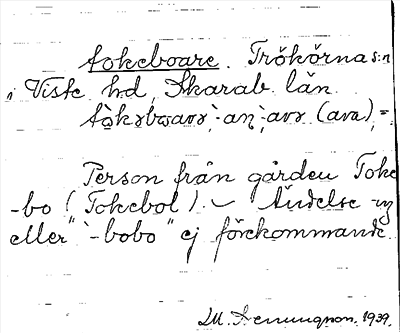 tokeboare. Trökörna s:n
i Viste hd, Skarab. län.
-an, -avr (ava), =
Person från gården Toke
-bo (Tokebol). – Ändelse
eller "-bobo" ej förekommande.
1939.